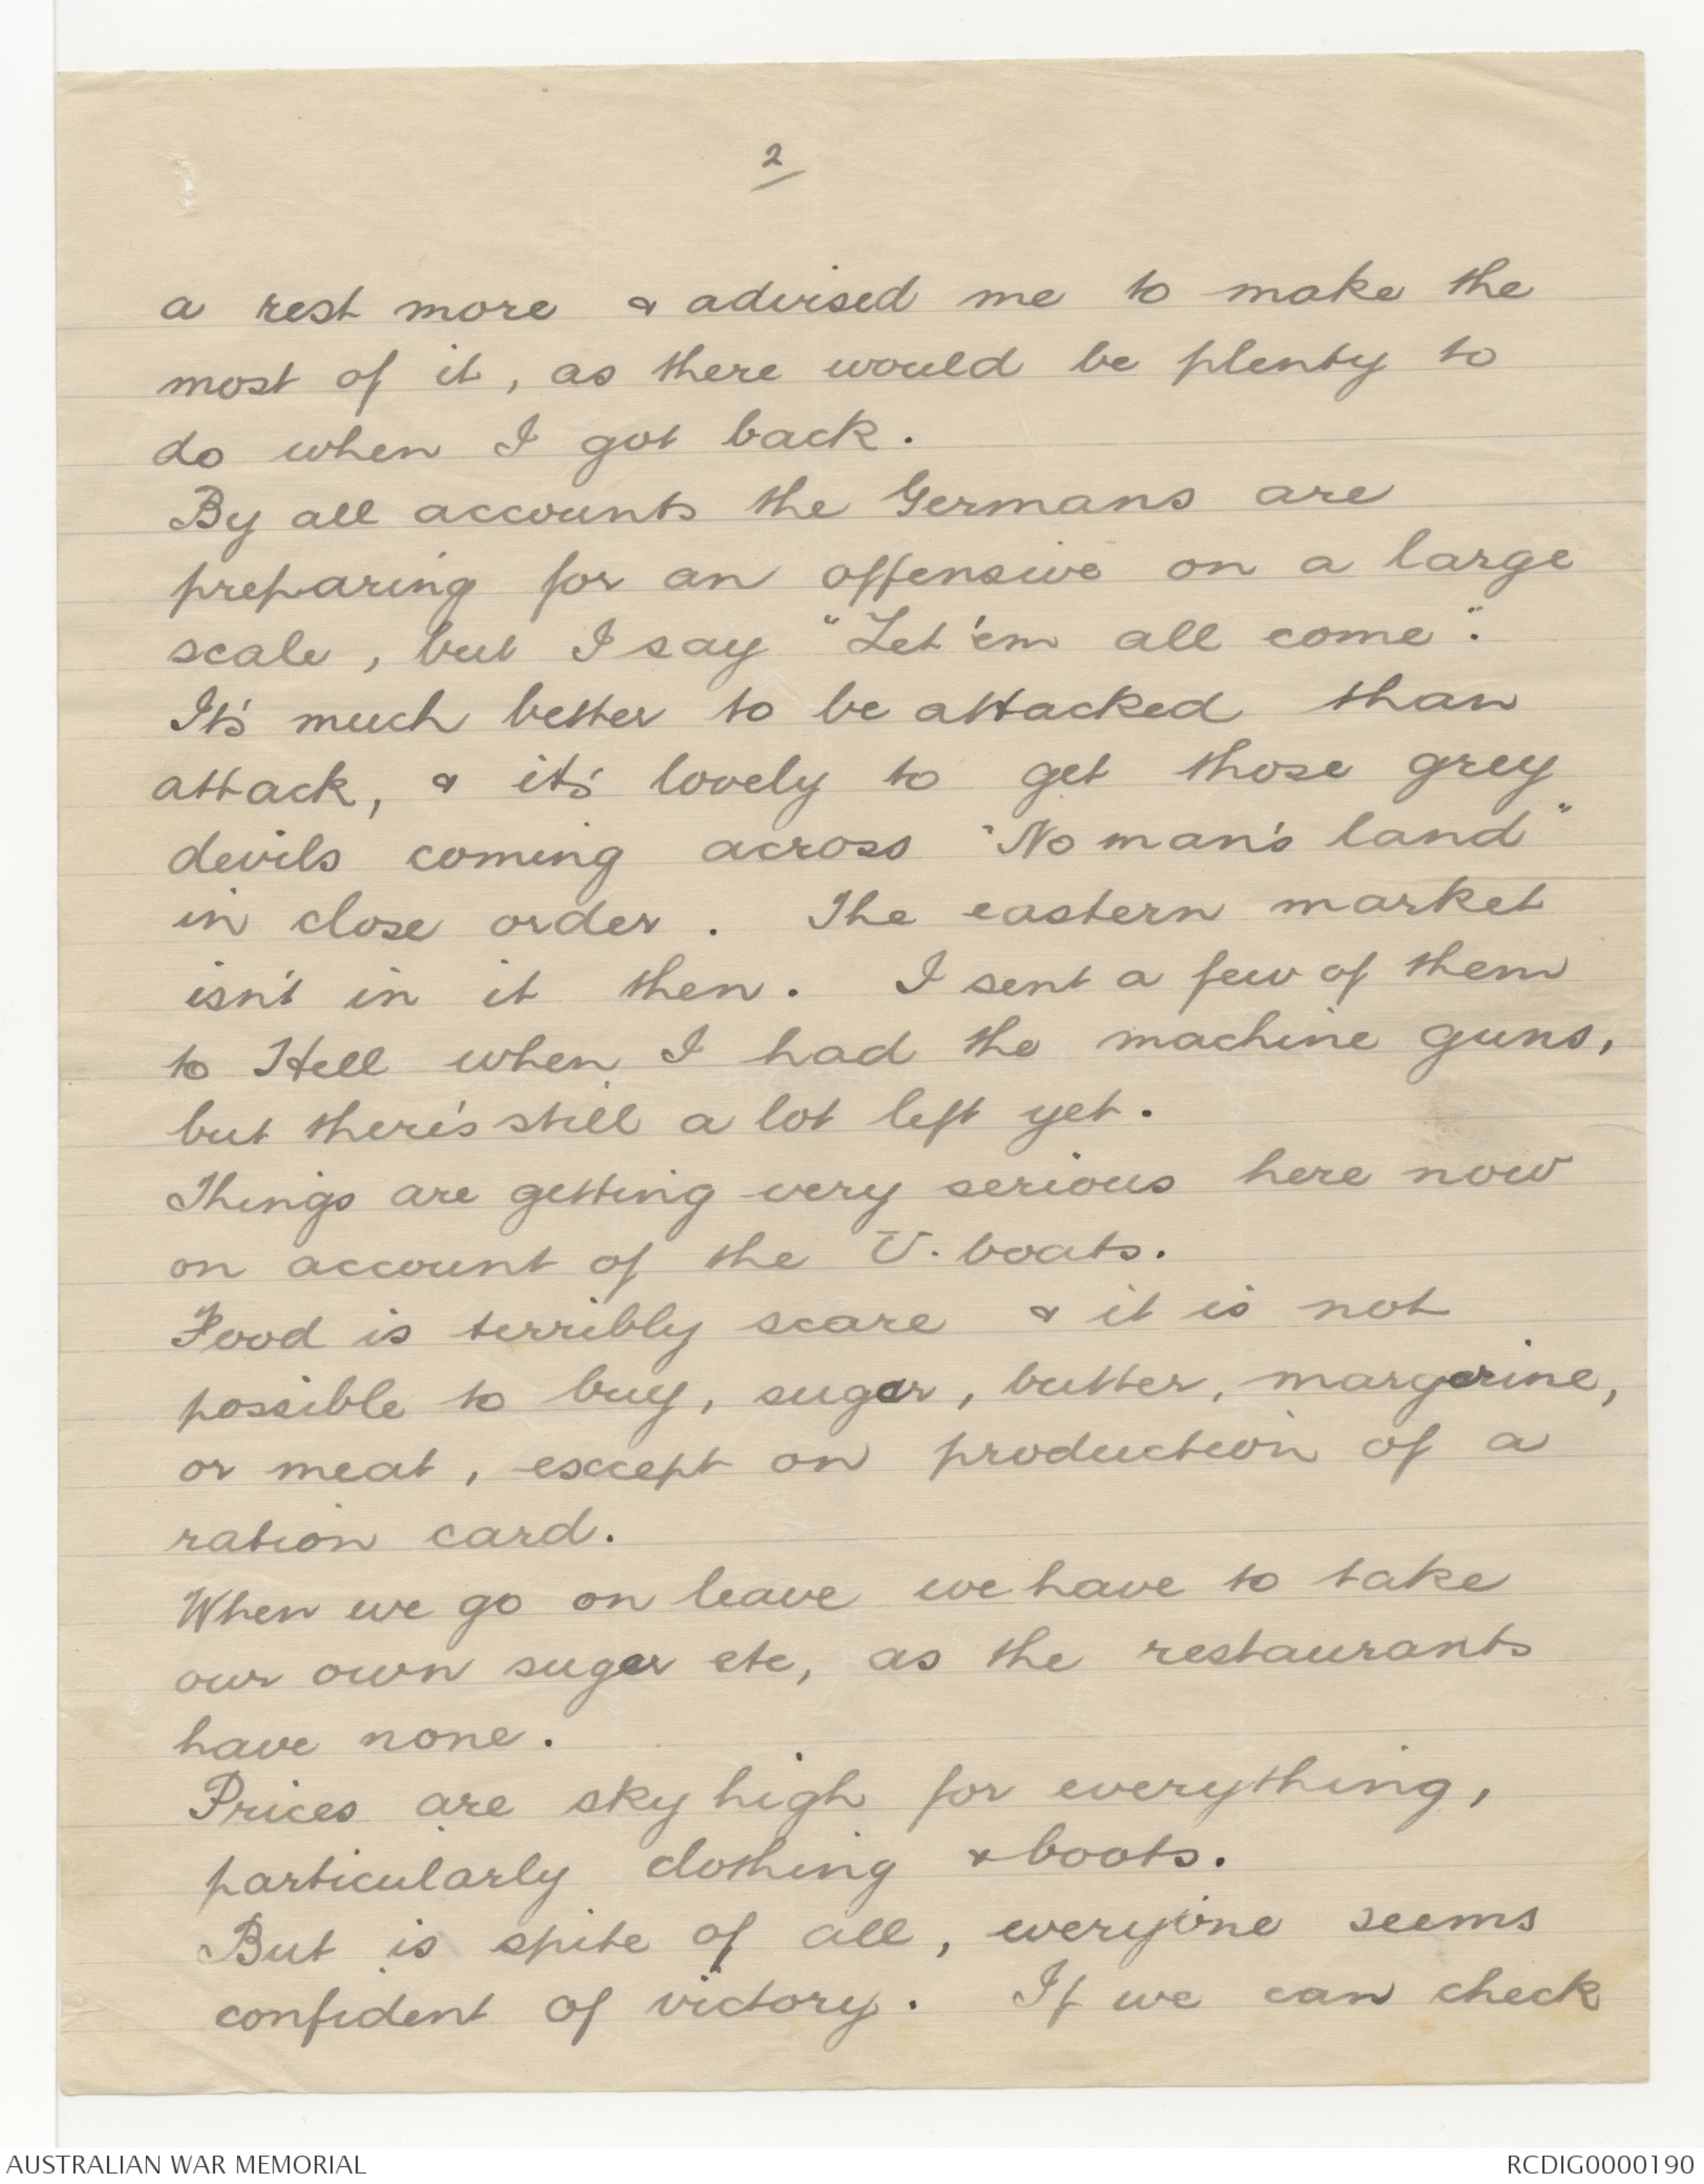 2
a rest more & advised me to make the
most of it, as there would be plenty to
do when I got back.
By all accounts the Germans are
preparing for an offensive on a large
scale, but I say "Let 'em all come".
It's much better to be attacked than
attack, & it's lovely to get those grey
devils coming across "No man's land"
in close order. The eastern market
isn't in it then. I sent a few of them
to Hell when I had the machine guns,
but there's still a lot left yet.
Things are getting very serious here now
on account of the U. boats.
Food is terribly scare & it is not
possible to buy, sugar, butter, margarine,
or meat, except on production of a
ration card.
When we go on leave we have to take
our own sugar etc, as the restaurants
have none.
Prices are sky high for everything,
particularly clothing & boots.
But is spite of all, everyone seems
confident of victory. If we can check
AUSTRALIAN WAR MEMORIAL
RCDIG0000190